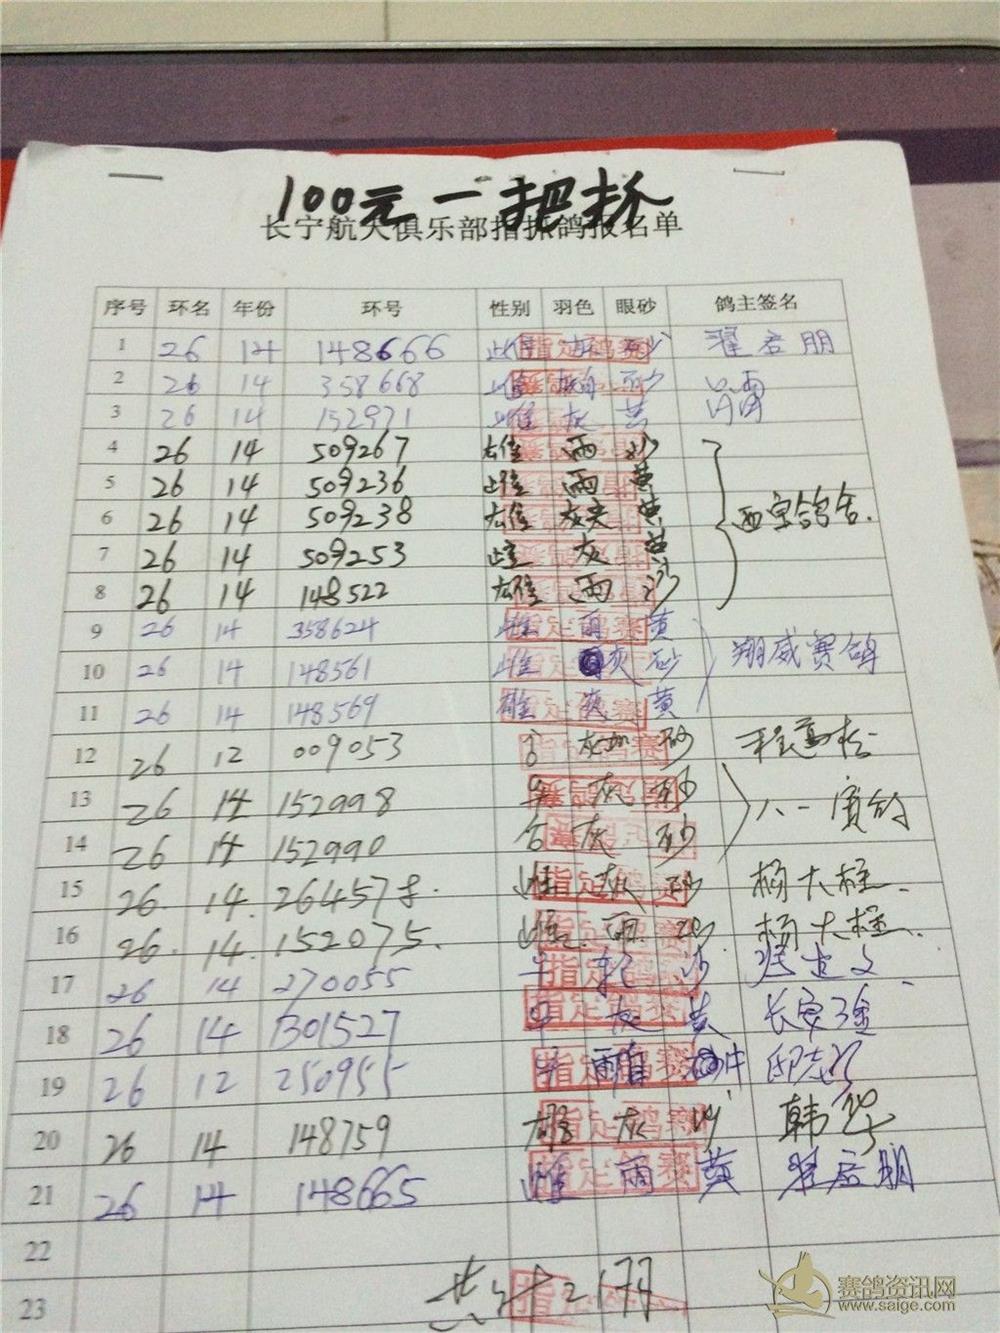 100元一把抓
长宁航天俱乐部指抓鸽报名单
序号 环名 年份 环号 性别 羽色 眼砂 鸽主签名
1 26 14 148666 雌 砂 翟启朋
2 26 14 358668 雌 灰白 砂
3 26 14 152971 雌 灰 黄
4 26 14 509267 雄 雨 砂
5 26 14 509236 雌 雨 黄
6 26 14 509238 雄 灰 黄 西宝鸽舍.
7 26 14 509253 雌 灰 黄
8 26 14 148522 雄 雨 沙
9 26 14 358624 雌 雨 黄
10 26 14 148561 雌 灰 砂 翔威赛鸽
11 26 14 148569 雄 黄
12 26 12 009053 砂
13 26 14 152998 灰 砂 八一赛鸽
14 26 14 152990 灰 砂
15 26. 14. 264578. 雌 灰 砂 杨大柱.
16 26. 14. 152075. 雌 雨. 沙 杨大柱.
17 26 14 270055 沙
18 26 14 1301527 灰 黄
19 26 12 250955 雨白
20 26 14 148759 雄 灰 沙 韩华
21 26 14 148665 雌 雨 黄 翟启朋
22
23
共计21羽
指定鸽赛
赛鸽资讯网
www.saige.com